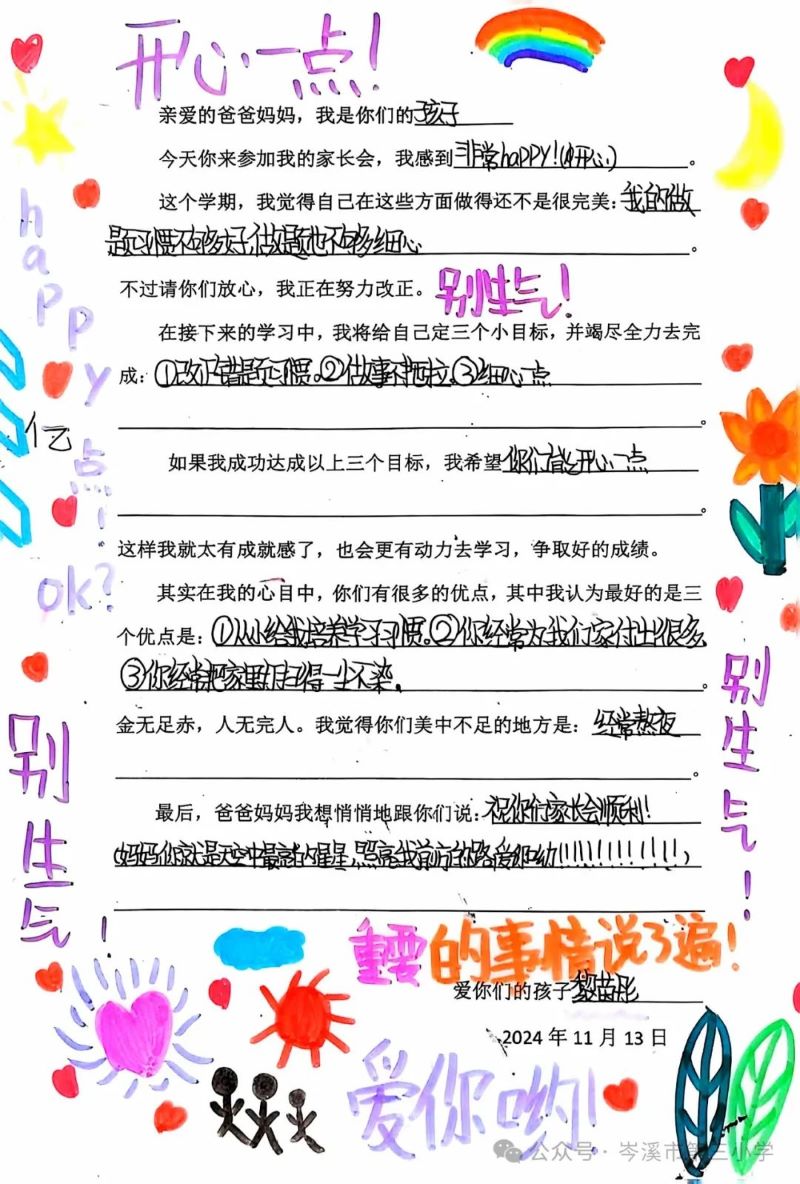 开心一点!
亲爱的爸爸妈妈，我是你们的孩子
今天你来参加我的家长会，我感到非常happy!(開心)。
这个学期，我觉得自己在这些方面做得还不是很完美：我的做
题习惯不够好,做题也不够细心。
不过请你们放心，我正在努力改正。别生气!
在接下来的学习中，我将给自己定三个小目标，并竭尽全力去完
成：①改正错题习惯。②做事不拖拉。③细心一点
。
如果我成功达成以上三个目标，我希望你们能开心一点
。
这样我就太有成就感了，也会更有动力去学习，争取好的成绩。
其实在我的心目中，你们有很多的优点，其中我认为最好的是三
个优点是：①从小给我培养学习习惯。②你经常为我们家付出很多、
③你经常把家里打扫得一尘不染。
金无足赤，人无完人。我觉得你们美中不足的地方是：经常熬夜
。
最后，爸爸妈妈我想悄悄地跟你们说：祝你们家长会顺利!
(妈妈你就是天空中最亮的星星,照亮我前方的路爱你呦!!!!!!!!!!!!!)
重要的事情说了遍!
爱你们的孩子黎苗彤
2024年11月13日
爱你哟!
happy
亿
点!
ok?
别生气!
别生气!
公众号·岑溪市第三小学